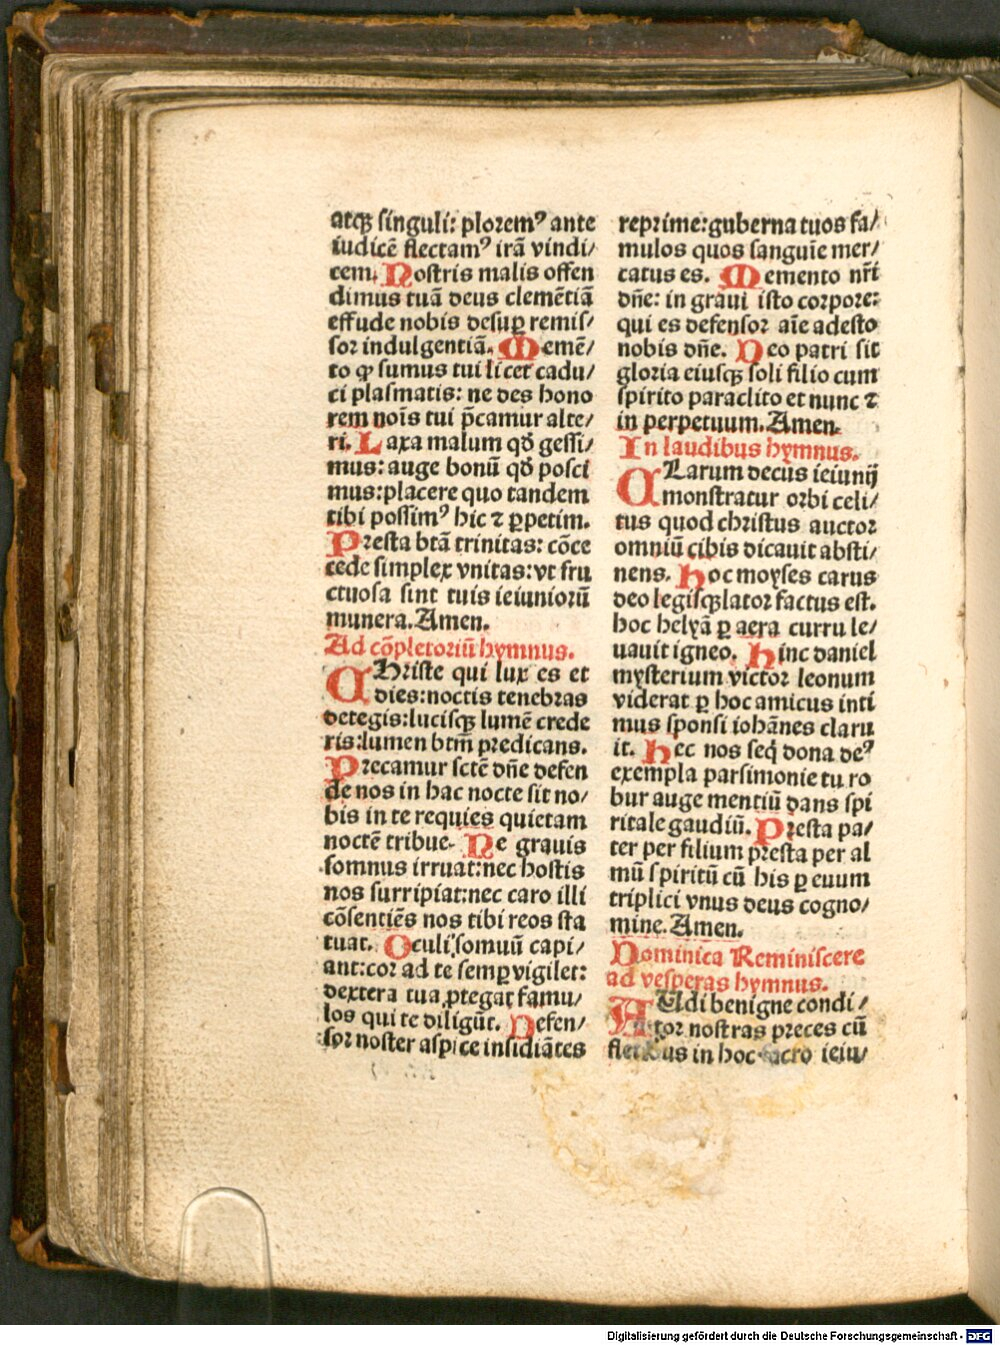 atqꝫ singuli: plorem⁹ ante
iudicē flectam⁹ irā vindi/
cem. Nostris malis offen
dimus tuā deus clemētiā
effude nobis desuꝑ remis/
sor indulgentiā. Memē/
to ꝙ sumus tui licet cadu/
ci plasmatis: ne des hono
rem noīs tui p̄camur alte/
ri. Laxa malum qđ gessi/
mus: auge bonū qđ posci
mus: placere quo tandem
tibi possim⁹ hic ⁊ ꝑpetim.
Presta btā trinitas: cōce
cede simplex vnitas: vt fru
ctuosa sint tuis ieiuniorū
munera. Amen.
Ad cōpletoriū hymnus.
CHriste qui lux es et
dies: noctis tenebras
detegis: lucisqꝫ lumē crede
ris: lumen btm̄ predicans.
Precamur sctē dn̄e defen
de nos in hac nocte sit no/
bis in te requies quietam
noctē tribue. Ne grauis
somnus irruat: nec hostis
nos surripiat: nec caro illi
cōsentiēs nos tibi reos sta
tuat. Oculi somuū capi/
ant: cor ad te semꝑ vigilet:
dextera tua ꝓtegat famu/
los qui te diligūt. Defen/
sor noster aspice insidiātes
reprime: guberna tuos fa/
mulos quos sanguīe mer/
catus es. Memento nr̄i
dn̄e: in graui isto corpore:
qui es defensor aīe adesto
nobis dn̄e. Deo patri sit
gloria eiusqꝫ soli filio cum
spirito paraclito et nunc ⁊
in perpetuum. Amen.
In laudibus hymnus.
CLarum decus ieiunij
monstratur orbi celi/
tus quod christus auctor
omniū cibis dicauit absti/
nens. Hoc moyses carus
deo legisqꝫ lator factus est.
hoc helyā ꝑ aera curru le/
uauit igneo. Hinc daniel
mysterium victor leonum
viderat ꝑ hoc amicus inti
mus sponsi iohānes claru
it. Hec nos seq̄ dona de⁹
exempla parsimonie tu ro
bur auge mentiū dans spi
ritale gaudiū. Presta pa/
ter per filium presta per al
mū spiritū cū his ꝑ euum
triplici vnus deus cogno/
mine. Amen.
Dominica Reminiscere
ad vesperas hymnus.
AUdi benigne condi/
tor nostras preces cū
fletibus in hoc sacro ieiu/
Digitalisierung gefördert durch die Deutsche Forschungsgemeinschaft - DFG